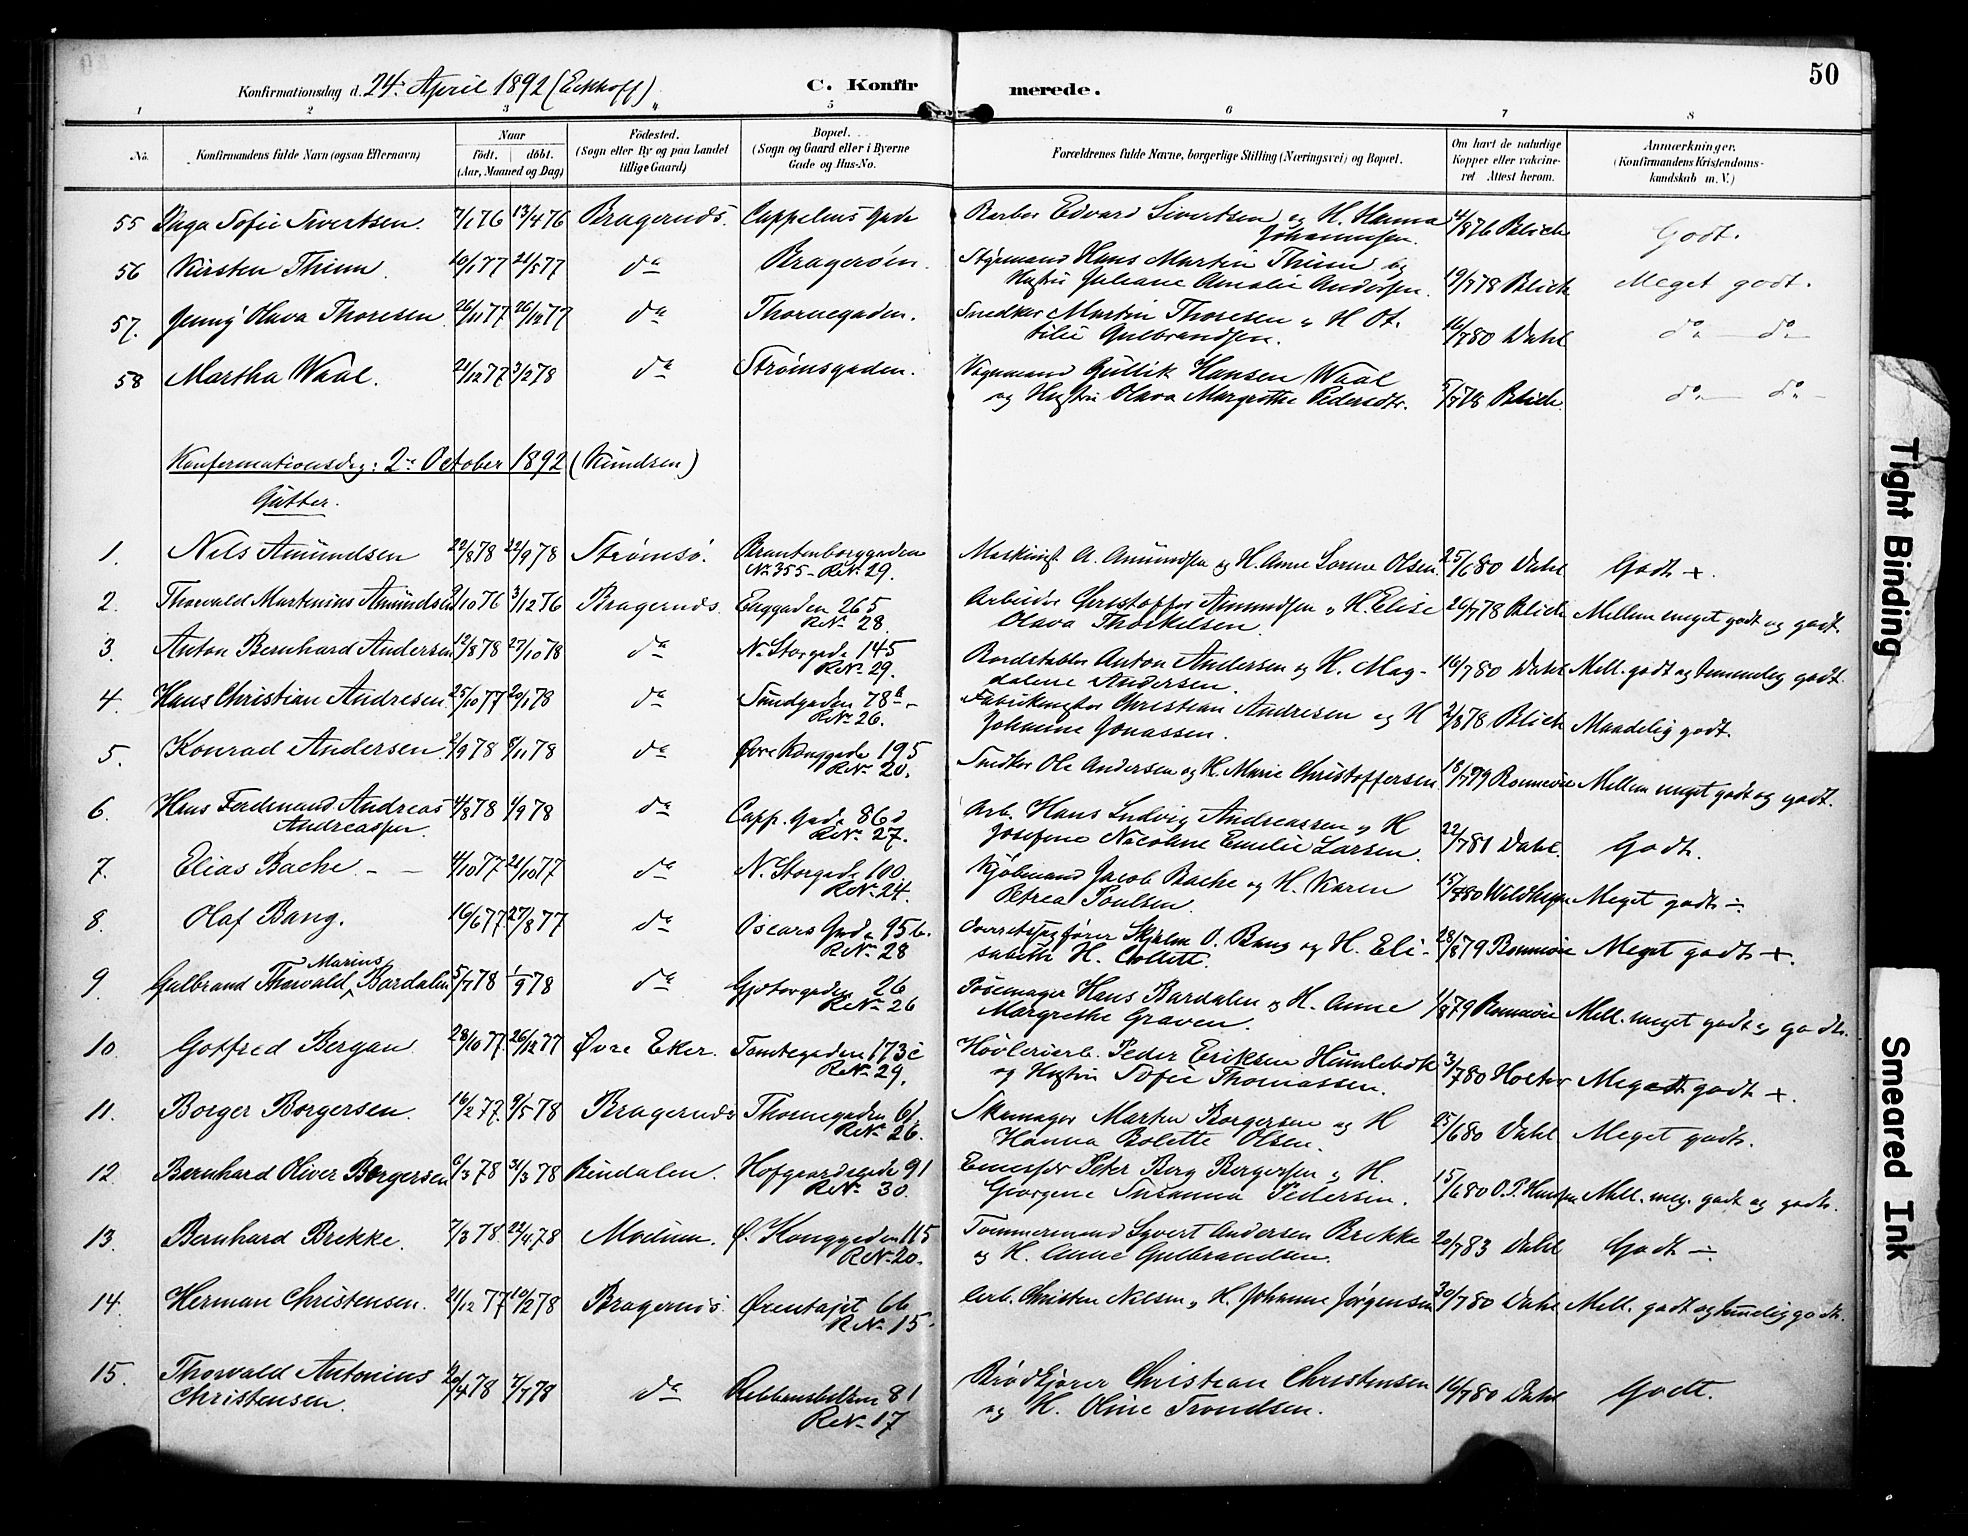 50
Konfirmationsdag d. 24. April 1892 (Eckhoff) C. Konfirmerede.
1 2 3 4 5 6 7 8
No. Konfirmandens fulde Navn (ogsaa Efternavn) Naar født. døbt. (Aar, Maaned og Dag) Födested. (Sogn eller By og paa Landet tillige Gaard) Bopæl. (Sogn og Gaard eller i Byerne Gade og Hus-No. Forældrenes fulde Navne, borgerlige Stilling (Næringsvei) og Bopæl. Om havt de naturlige Kopper eller vakcineret Attest herom. Anmærkninger. (Konfirmandens Kristendomskundskab m. V.)
55 Inga Sofie Sivertsen. 7/1 76 13/4 76 Bragernæs. Cappelens Gade Edvard Sivertsen og H. Hanna
Johannesen. /8 76 Blich Godt.
56 Kirsten Thim 10/1 77 21/5 77 da Bragerøen. Styrmand Hans Martin Thim og
Hustru Juliane Amalie Andersen. 19/7 78 Blich Meget godt.
57. Jenny Olava Thoresen 26/11 77 26/12 77 da Thornegaden. Snedker Martin Thoresen og H Ot-
tilie Gulbrandsen. 16/7 80 Dahl do do
58 Martha Waal. 21/12 77 3/2 78 da Strømsgaden. Vognmand Gullik Hansen Waal
og Hustru Olava Margrethe Pedersdtr. 5/7 78 Blich. do do
Konfirmationsdag: 2de October 1892 (Knudsen)
Gutter.
1. Nils Amundsen 22/8 78 22/9 78 Strømsø. Brantenborggaden
No. 355 - R.No. 29. Maskinist A. Amundsen og H. Anne Lovise Olsen. 25/6 80 Dahl Godt +.
2. Thorvald Martinius Amundsen /10 76 3/12 76 Bragernæs. Enggaden 265
R.No. 28. Arbeider Christoffer Amundsen og H. Elise
Olava Thorkilsen. 26/7 78 Blich Mellem meget godt og godt.
3. Anton Bernhard Andersen 12/8 78 27/10 78 da N. Storgade 145
R.No. 29. Anton Andersen og H. Mag-
dalene Andersen. 16/7 80 Dahl Mell. godt og temmelig godt.
4. Hans Christian Andresen. 25/10 77 20/1 78 da Sundgaden 78a
R.No. 26. Christian Andresen og H
Johanne Jonassen. 2/8 78 Blich Maadelig godt.
5. Konrad Andersen 2/9 78 /11 78 da Øvre Konggade 195
R.No. 20. Snedker Ole Andersen og H. Marie Christoffersen 18/7 79 Rønnevie Mellem meget godt og godt.
6. Hans Ferdinand Andreas
Andreassen. 4/8 78 1/9 78 da Capp. Gade 86d
R.No. 27. Arb. Hans Ludvig Andreassen og H
Josefine Nicoline Emelie Larsen. 22/7 81 Dahl. Godt.
7. Elias Bache. - - 4/10 77 21/10 77 da N. Storgade 100.
R.No. 24. Kjøbmand Jacob Bache og H. Karen
Petrea Poulsen. 15/ 80 Meget godt ÷.
8. Olaf Bang. 16/6 77 27/8 77 da Oscars Gade 95b.
R.No. 28 Overretssagfører Skjelm O. Bang og H. Eli-
sabeth H. Collett. 28/8 79 Rønnevie Meget godt +.
9. Gulbrand Thorvald Marius Bardalen 5/7 78 1/9 78 da Gjetergaden 26
R.No. 26 Hans Bardalen og H. Anne
Margrethe Graven. 1/8 79 Rønnevie Mell. meget godt og godt.
10. Gotfred Bergan. 28/10 77 26/12 77 Øvre Eker. Tomtegaden 173c
R.No. 29. Høvleriarb. Peder Eriksen Humlebæk
og Hustru Sofie Thomassen. 3/7 80 Holter Meget godt +.
11. Borger Borgersen. 16/2 77. 9/5 78 Bragernæs Thornegaden 61
R.No. 26. Skomager Martin Borgersen og H
Hanna Bolette Olsen. 25/6 80 Dahl Meget godt.
12. Bernhard Oliver Borgersen 6/3 78 31/3 78 Bindalen. Hofgaardsgade 91
R.No. 30. Peter Berg Borgersen og H.
Georgine Susanna Pedersen. 15/6 80 O. P. Hansen Mell. meg. godt og godt.
13. Bernhard Brekke. 7/3 78. 22/4 78 Modum. Ø. Konggaden 115
R.No. 20. Tømmermand Syvert Andersen Brekke
og H. Anne Gulbrandsen. 20/7 83 Dahl Godt ÷
14. Herman Christensen. 21/12 77 10/2 78 Bragernæs. Ørentajet 66
R.No. 15. Arb. Christen Nilsen og H. Johanne Jørgensen 30/7 80 Dahl Mell. godt og temmelig godt.
15. Thorvald Antonius
Christensen. 20/4 78 7/7 78 da 81
R.No. 17 Brødkjører Christian Christensen
og H. Oline Trondsen. 16/7 80 Dahl Godt.
Tight Binding
Smeared Ink